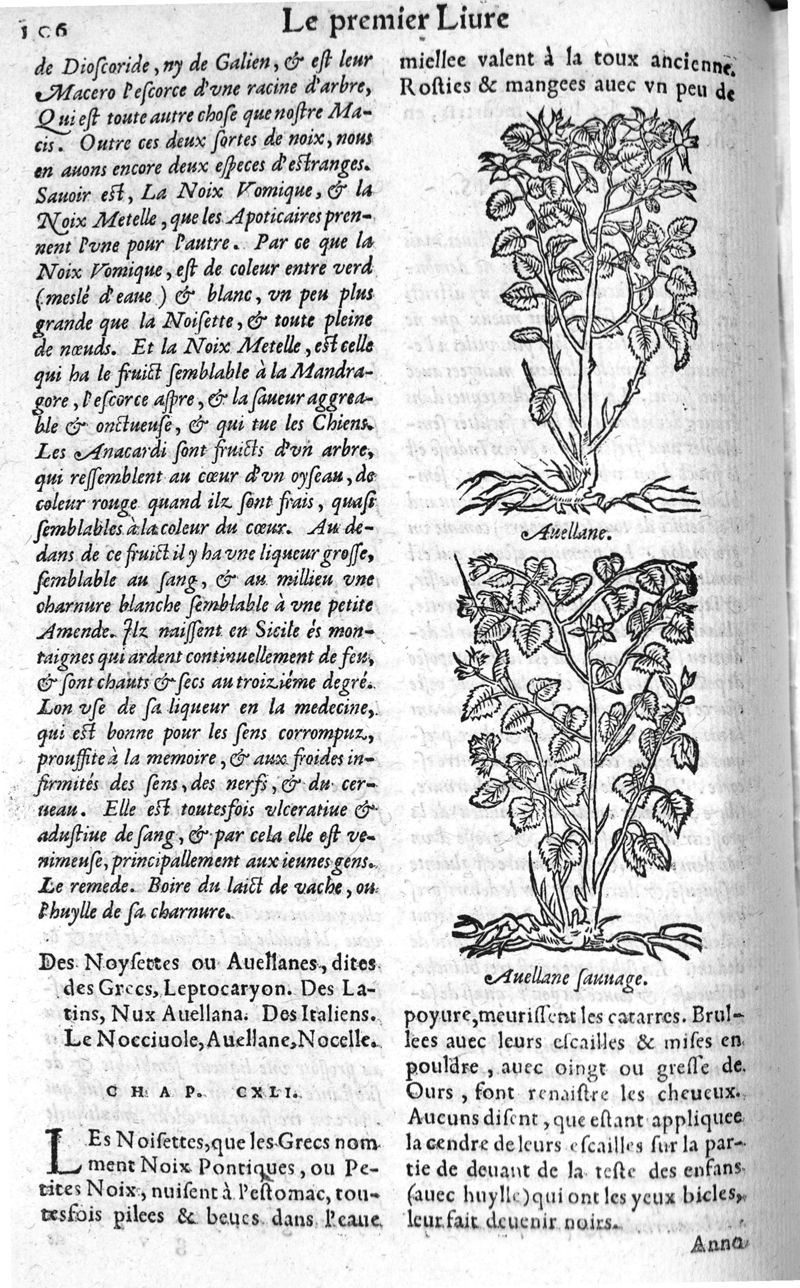 106
Le premier Liure
de Dioſcoride, ny de Galien, & eſt leur
Macero l'eſcorce d'vne racine d'arbre,
Qui eſt toute autre choſe que noſtre Ma-
cis. Outre ces deux ſortes de noix, nous
en auons encore deux eſpeces d'eſtranges.
Sauoir eſt, La Noix Vomique, & la
Noix Metelle, que les Apoticaires pren-
nent l'vne pour l'autre. Par ce que la
Noix Vomique, eſt de coleur entre verd
(meslé d'eaue) & blanc, vn peu plus
grande que la Noiſette, & toute pleine
de nœuds. Et la Noix Metelle, eſt celle
qui ha le fruict ſemblable à la Mandra-
gore, l'eſcorce aſpre, & la ſaueur aggrea-
ble & onctueuſe, & qui tue les Chiens.
Les Anacardi ſont fruicts d'vn arbre,
qui reſſemblent au cœur d'vn oyſeau, de
coleur rouge quand ilz ſont frais, quaſi
ſemblables à la coleur du cœur. Au de-
dans de ce fruict il y ha vne liqueur groſſe,
ſemblable au ſang, & au millieu vne
charnure blanche ſemblable à vne petite
Amende. Ilz naiſſent en Sicile és mon-
taignes qui ardent continuellement de feu,
& ſont chauts & ſecs au troiziéme degré.
Lon vſe de ſa liqueur en la medecine,
qui eſt bonne pour les ſens corrompuz,
prouffite à la memoire, & aux froides in-
firmités des ſens, des nerfs, & du cer-
ueau. Elle eſt toutesfois vlceratiue &
aduſtiue de ſang, & par cela elle eſt ve-
nimeuſe, principallement aux ieunes gens.
Le remede. Boire du laict de vache, ou
l'huylle de ſa charnure.
Des Noyſettes ou Auellanes, dites
des Grecs, Leptocaryon. Des La-
tins, Nux Auellana. Des Italiens.
Le Nocciuole, Auellane, Nocelle.
CHAP. CXLI.
LEs Noiſettes, que les Grecs nom
ment Noix Pontiques, ou Pe-
tites Noix, nuiſent à l'eſtomac, tou-
tesfois pilees & beues dans l'eaue
miellee valent à la toux ancienne.
Roſties & mangees auec vn peu de
Auellane.
Auellane ſauuage.
poyure, meuriſſent les catarres. Brul-
lees auec leurs eſcailles & miſes en
pouldre, auec oingt ou greſſe de
Ours, font renaiſtre les cheueux.
Aucuns diſent, que eſtant appliquee
la cendre de leurs eſcailles ſur la par-
tie de deuant de la teſte des enfans
(auec huylle) qui ont les yeux bicles,
leur fait deuenir noirs.
Anno